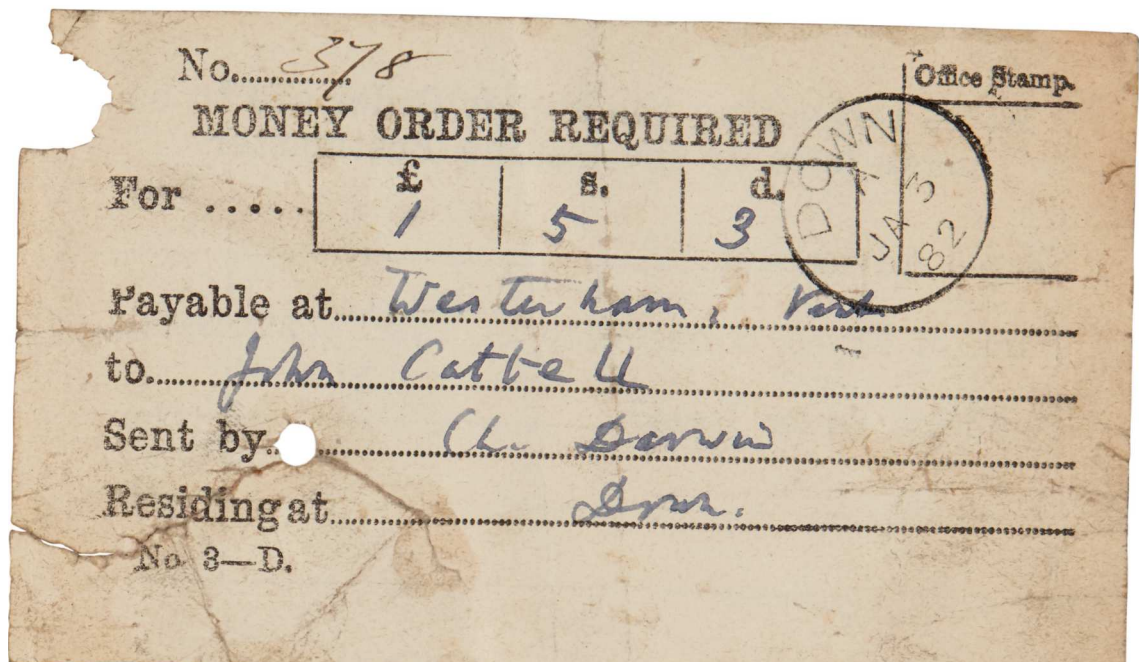 No. 378
Office Stamp.
MONEY ORDER REQUIRED
DOWN
A
JA 3
82
£ s. d.
For ..... 1 5 3
Payable at Westerham, Kent
to John Cattell
Sent by Ch. Darwin
Residing at Down.
No 3—D.